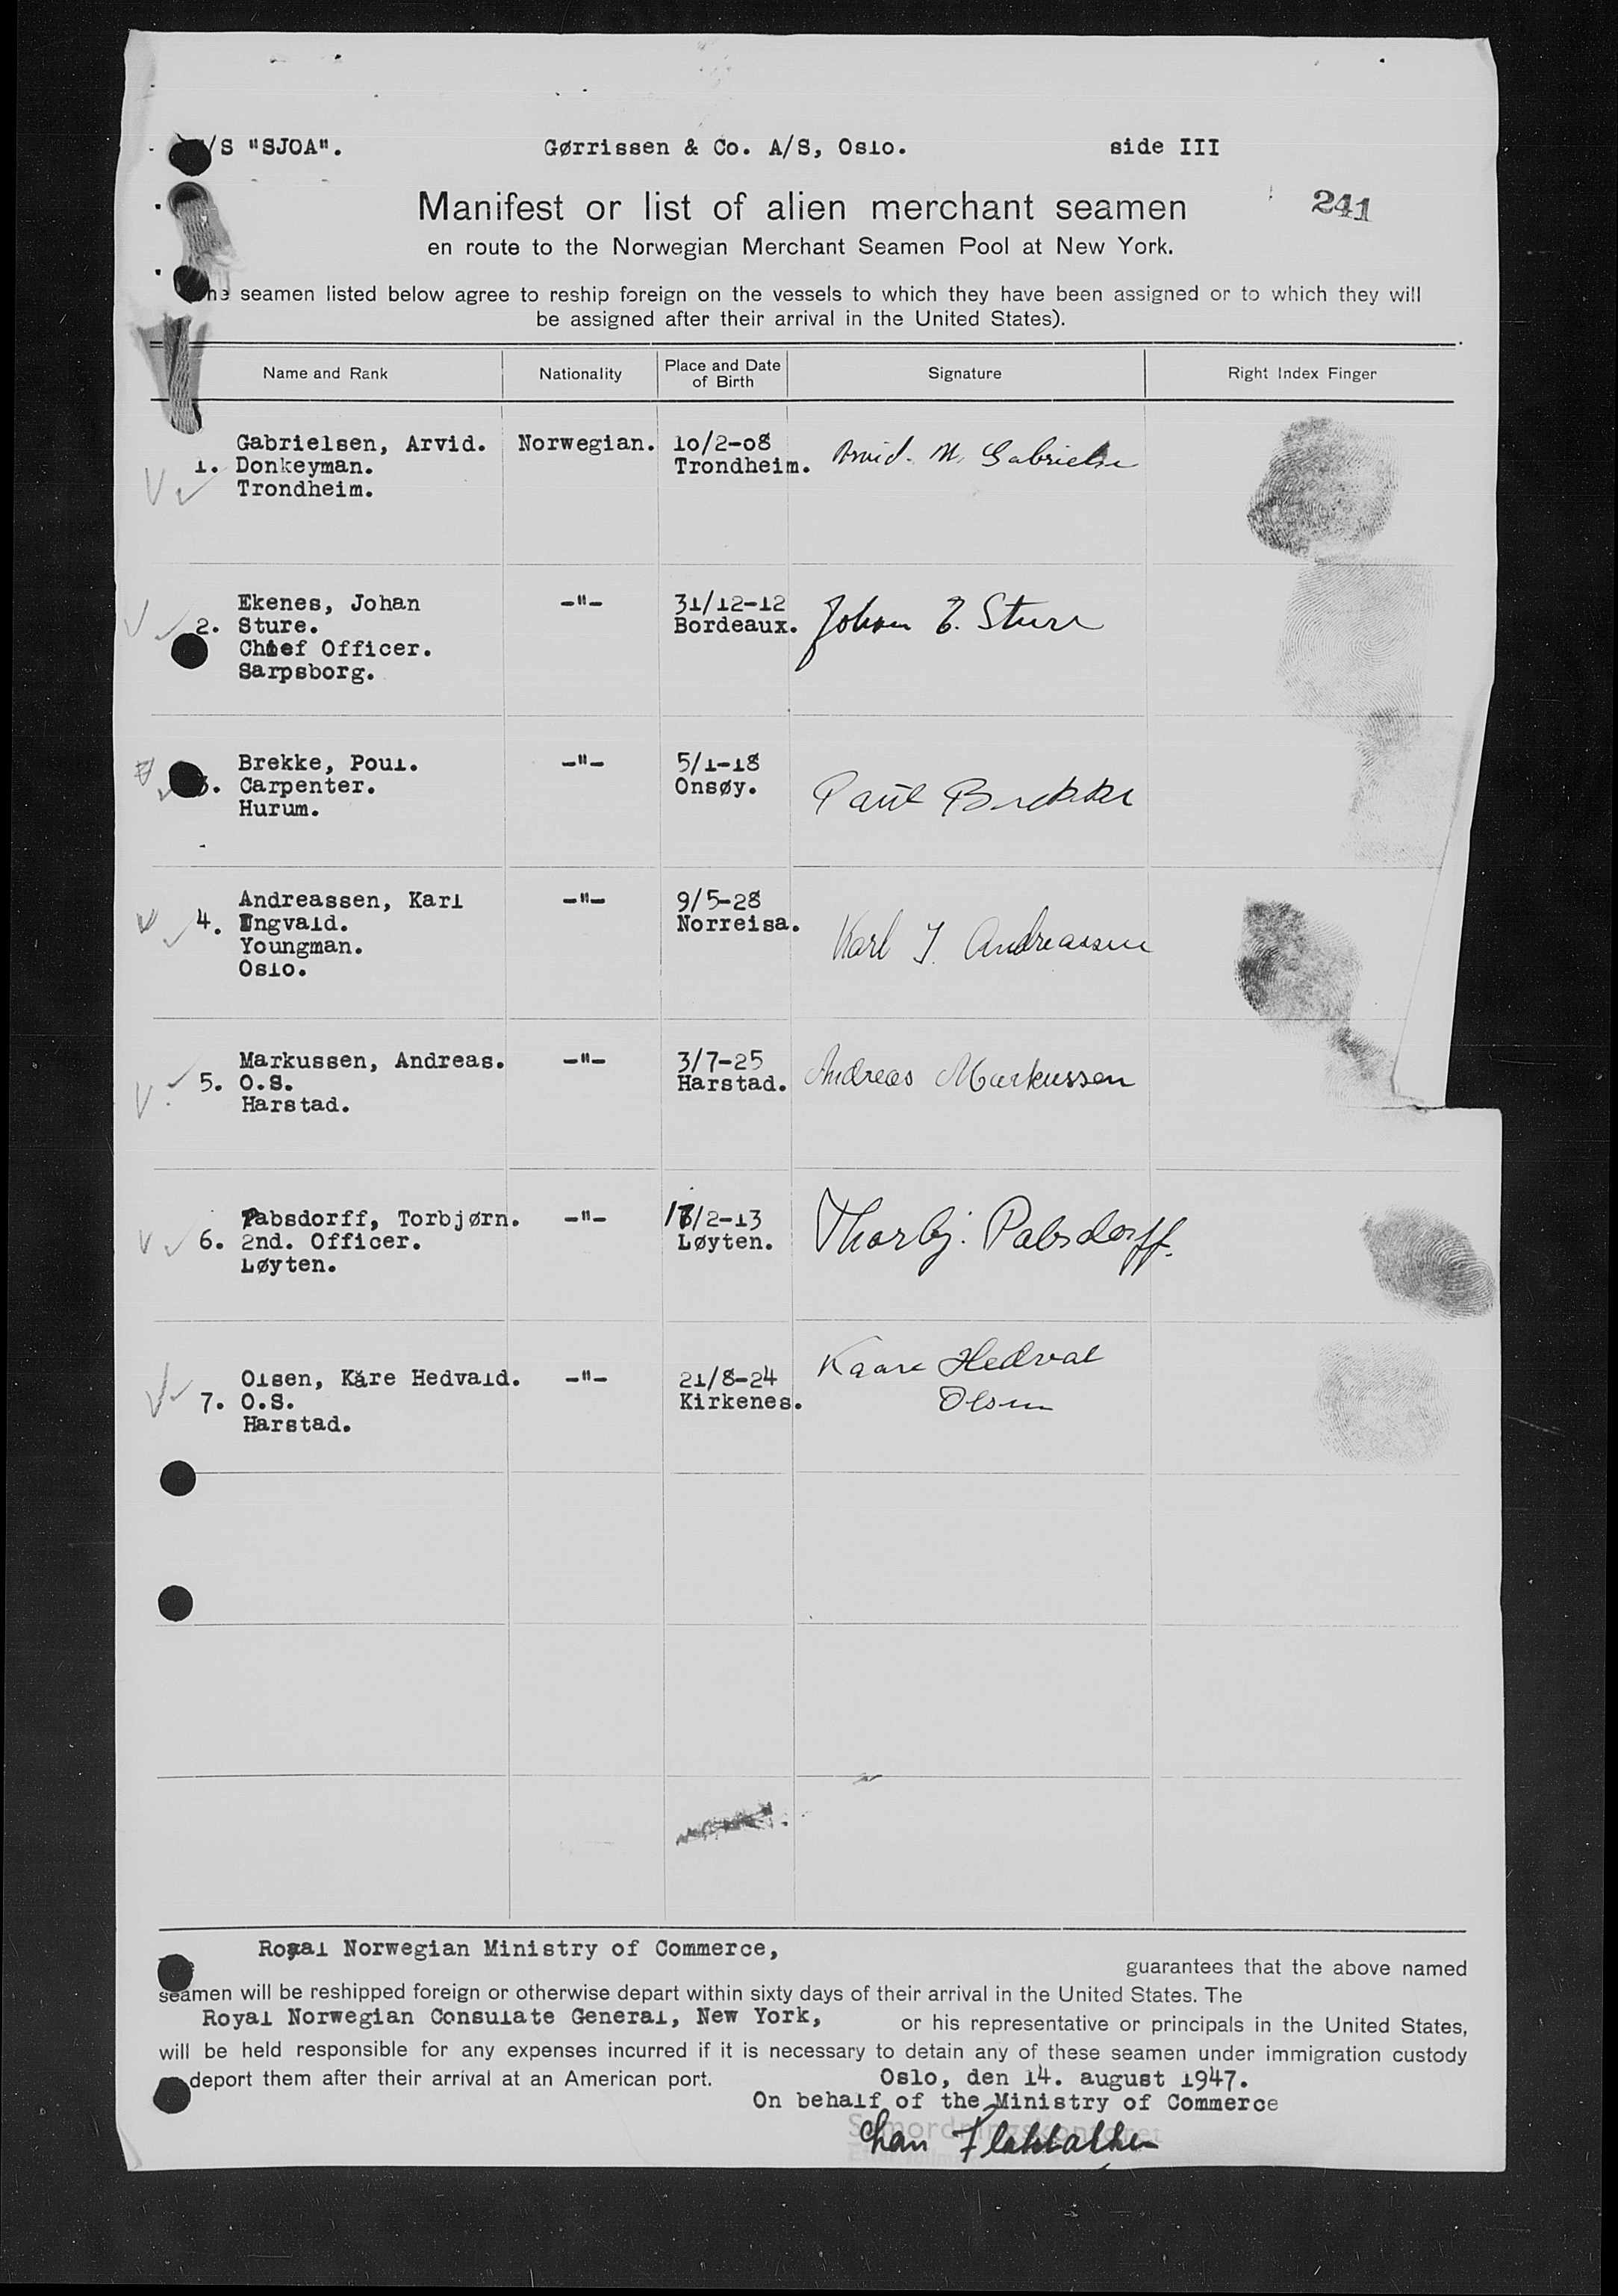 /S "SJOA". Gørrissen & Co. A/S, Oslo. side III
Manifest or list of alien merchant seamen 241
en route to the Norwegian Merchant Seamen Pool at New York.
seamen listed below agree to reship foreign on the vessels to which they have been assigned or to which they will
be assigned after their arrival in the United States).
Name and Rank Nationality Place and Date of Birth Signature Right Index Finger
Gabrielsen, Arvid. Norwegian. 10/2-08
1. Donkeyman. Trondheim. Arvid. M. Gabrielsen
Trondheim.
Ekenes, Johan -"- 31/12-12
2. Sture. Bordeaux. Johan E. Sture
Chief Officer.
Sarpsborg.
Brekke, Poul. -"- 5/1-18
3. Carpenter. Onsøy. Paul Brekke
Hurum.
Andreassen, Karl -"- 9/5-28
4. Ingvald. Norreisa. Karl I. Andreassen
Youngman.
Oslo.
Markussen, Andreas. -"- 3/7-25
5. O.S. Harstad. Andreas Markussen
Harstad.
Pabsdorff, Torbjørn. -"- 17/2-13
6. 2nd. Officer. Løyten. Thorbj. Pabsdorff.
Løyten.
Olsen, Kåre Hedvald. -"- 21/8-24 Kaare Hedval
7. O.S. Kirkenes. Olsen
Harstad.
Royal Norwegian Ministry of Commerce,
guarantees that the above named
seamen will be reshipped foreign or otherwise depart within sixty days of their arrival in the United States. The
Royal Norwegian Consulate General, New York, or his representative or principals in the United States,
will be held responsible for any expenses incurred if it is necessary to detain any of these seamen under immigration custody
deport them after their arrival at an American port. Oslo, den 14. august 1947.
On behalf of the Ministry of Commerce